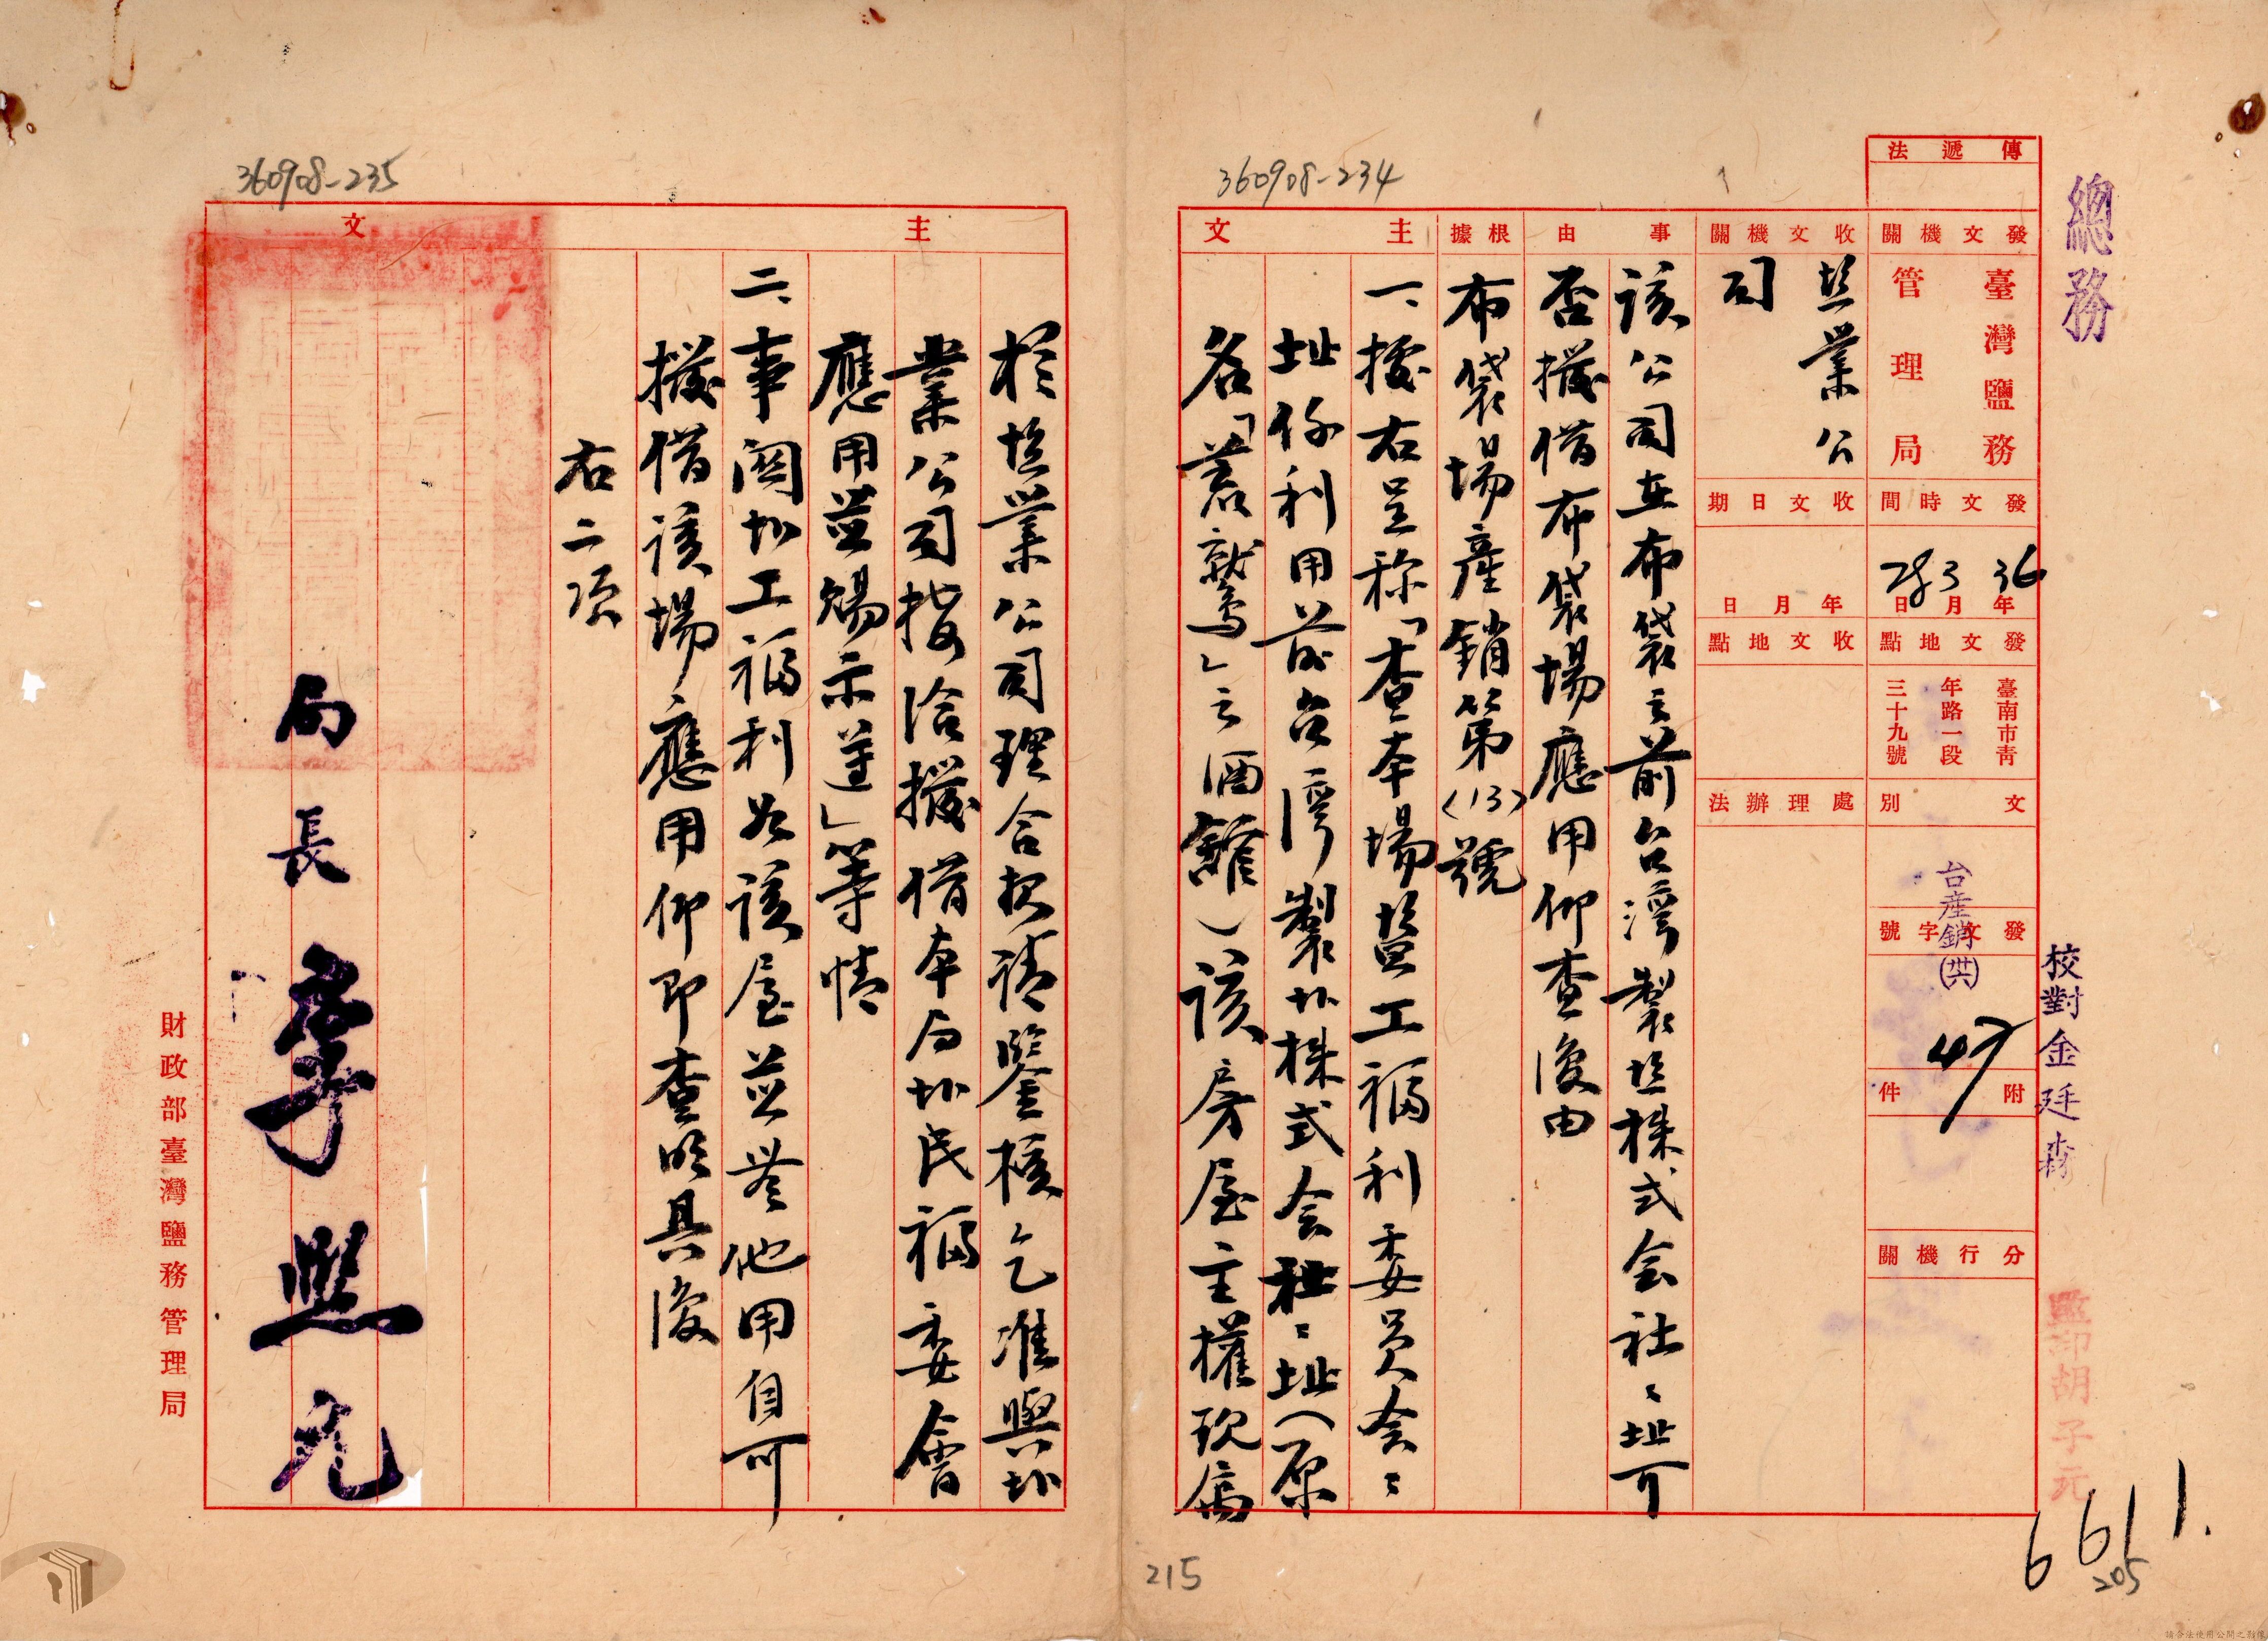 360908-234
總務
校對金廷森
監印胡子元
傳遞法
發文機關
臺灣鹽務
管理局
發文時間
36年3月28日
發文地點
臺南市青
年路一段
三十九號
文別
發文字號
台產銷(卅六)
附件
分行機關
收文機關
塩業公
司
收文日期
年月日
收文地點
處理辦法
事由
該公司在布袋之前台灣製塩株式会社々址可
否撥借布袋場應用仰查復由
根據
布袋場產銷第(13)號
主文
一、據右呈称「查本場塩工福利委員会々
址係利用前台湾製塩株式会社々址(原
名「蒼鷲」之酒館)該房屋主權現屬
215
6611.
205
360908-235
主文
於塩業公司理合報請鑒核乞准與塩
業公司接洽撥借本局塩民福委會
應用並賜示遵」等情
二、事關塩工福利如該屋並無他用自可
撥借該場應用仰即查明具復
右二項
局長李照九
財政部臺灣鹽務管理局